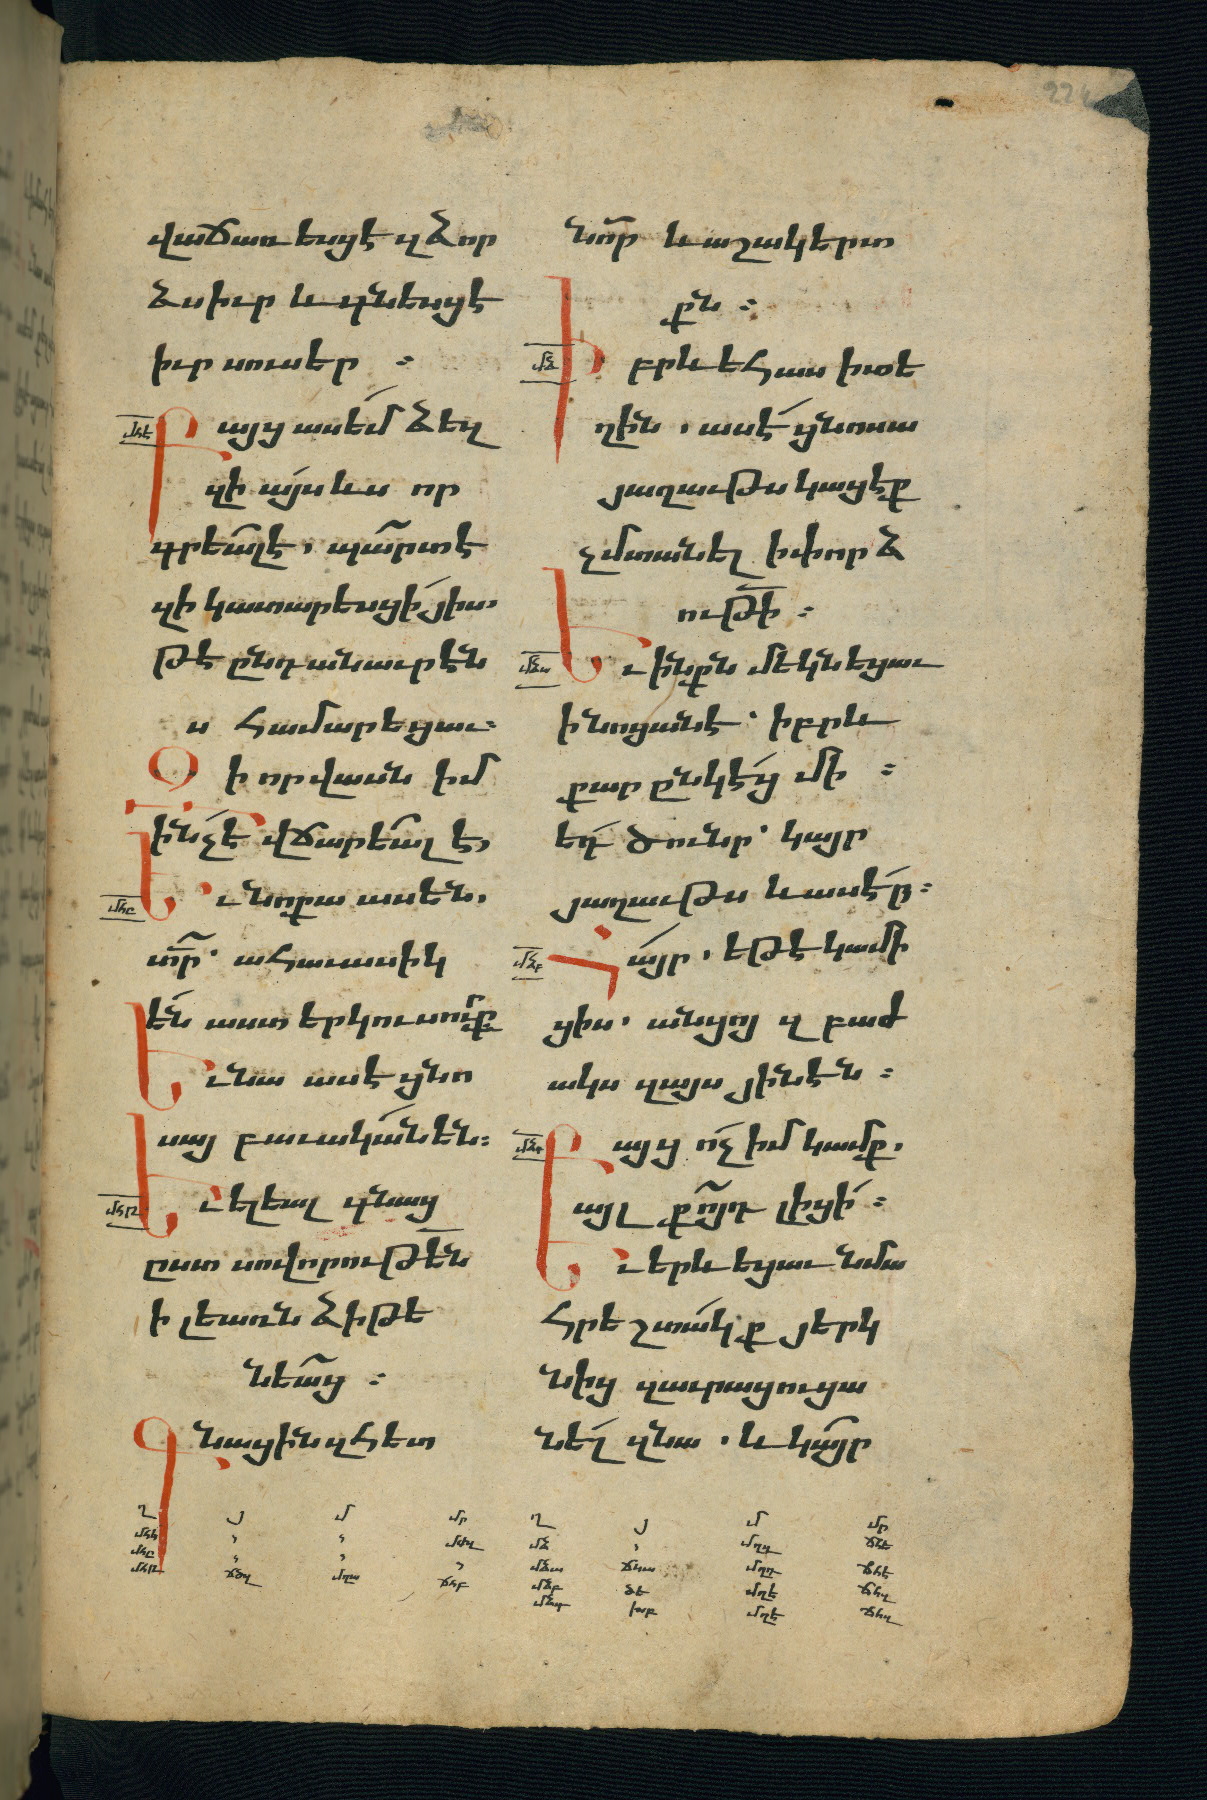 վաճառեսցէ զձոր
ձսիւր և գնեսցէ
իւր սուսեր ։
Բայց ասեմ ձեզ
զի այս ևս որ
գրեալէ, պարտէ
զի կատարեսցի յիս.
թէ ընդ անաւրէն
ս համարեցաւ։
Զի որ վասն իմ
ինչէ վճարեալ է,
Եւ նոքա ասեն,
տր՛ ահաւասիկ
են աստ երկու սուրք
Եւ նա ասէ ցնո
սայ բաւական են։
Եւ ելեալ գնաց
ըստ սովորութեն
ի լեառն ձիթե
նեաց ։
Գնացին զհետ
նոր և աշակերտ
քն ։
Իբրև եհաս ի տե
ղին, ասէ ցնոսա
յաղաւթս կացէք
չմտանել ի փորձ
ութի ։
Եւ ինքն մեկնեցաւ
ի նոցանէ՛ իբրև
քար ընկէց մի ։
եդ ծունր՛ կայր
յաղաւթս և ասէր։
Հայր, եթէ կամի
ցիս՛ անցոյ զբաժ
ակս զայս յինէն ։
Բայց ոչ իմ կամք,
այլ քոյդ լիցի ։
Եւ երևեցաւ նմա
հրեշտակ ք յերկ
նից զաւրացուցա
նել զնա, և կայր